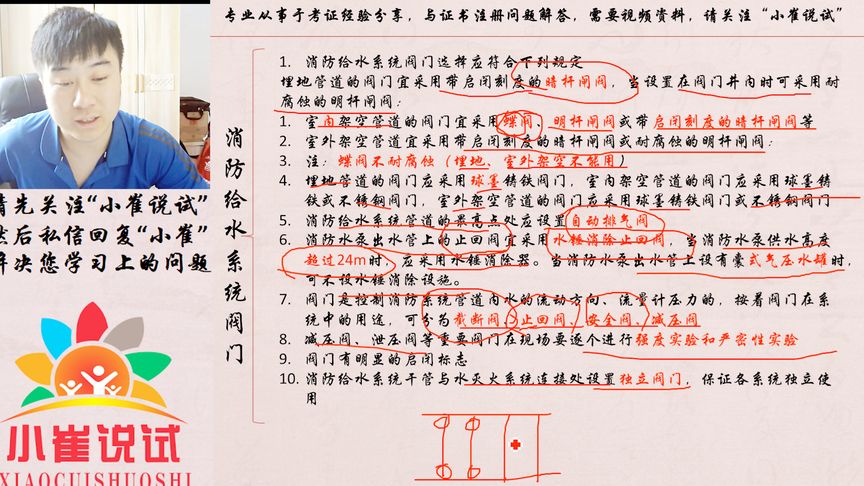 专业从事于考证经验分享，与证书注册问题解答，需要视频资料，请关注“小崔说试”
消防给水系统阀门
1. 消防给水系统阀门选择应符合下列规定
埋地管道的阀门宜采用带启闭刻度的暗杆闸阀，当设置在阀门井内时可采用耐
腐蚀的明杆闸阀：
1. 室内架空管道的阀门宜采用蝶阀、明杆闸阀或带启闭刻度的暗杆闸阀等
2. 室外架空管道宜采用带启闭刻度的暗杆闸阀或耐腐蚀的明杆闸阀：
3. 注：蝶阀不耐腐蚀（埋地、室外架空不能用）
4. 埋地管道的阀门应采用球墨铸铁阀门，室内架空管道的阀门应采用球墨铸
铁或不锈钢阀门，室外架空管道的阀门应采用球墨铸铁阀门或不锈钢阀门
5. 消防给水系统管道的最高点处应设置自动排气阀
6. 消防水泵出水管上的止回阀宜采用水锤消除止回阀，当消防水泵供水高度
超过24m时，应采用水锤消除器。当消防水泵出水管上设有囊式气压水罐时，
可不设水锤消除设施。
7. 阀门是控制消防系统管道内水的流动方向、流量计压力的，按着阀门在系
统中的用途，可分为截断阀、止回阀、安全阀、减压阀
8. 减压阀、泄压阀等重要阀门在现场要逐个进行强度实验和严密性实验
9. 阀门有明显的启闭标志
10. 消防给水系统干管与水灭火系统连接处设置独立阀门，保证各系统独立使
用
请先关注“小崔说试”
然后私信回复“小崔”
解决您学习上的问题
小崔说试
XIAOCUISHUOSHI